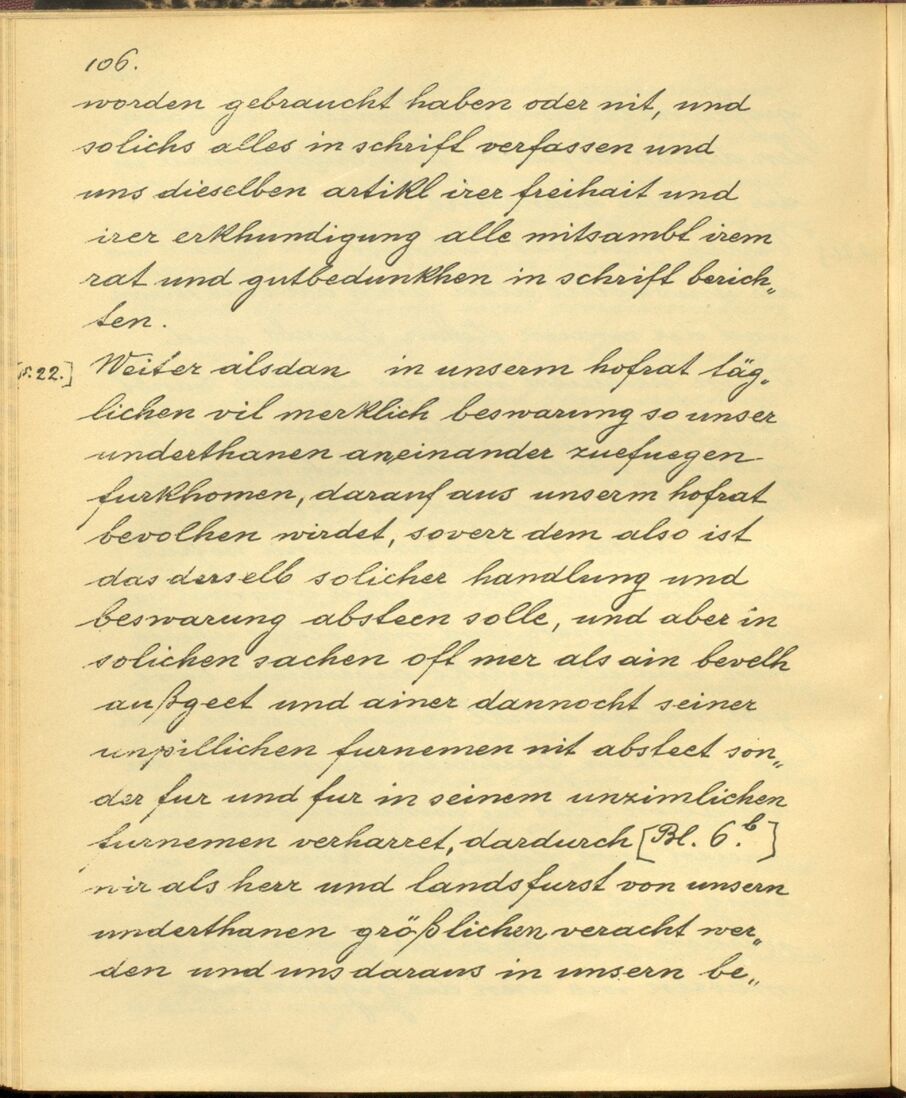 106.
worden gebraucht haben oder nit, und
solichs alles in schrift verfassen und
uns dieselben artikl irer freihait und
irer erkhundigung alle mitsambt irem
rat und gutbedunkhen in schrift berich„
ten.
[S. 22.] Weiter alsdan in unserm hofrat täg„
lichen vil merklich beswarung so unser
underthanen aneinander zuefuegen
furkhomen, darauf aus unserm hofrat
bevolhen wirdet, soverr dem also ist
das derselb solicher handlung und
beswarung absteen solle, und aber in
solichen sachen oft mer als ain bevelh
außgeet und ainer dannocht seiner
unpillichen furnemen nit absteet son„
der fur und fur in seinem unzimlichen
furnemen verharret, dardurch [Bl. 6.b]
wir als herr und landsfurst von unsern
underthanen größlichen veracht wer„
den und uns daraus in unsern be„